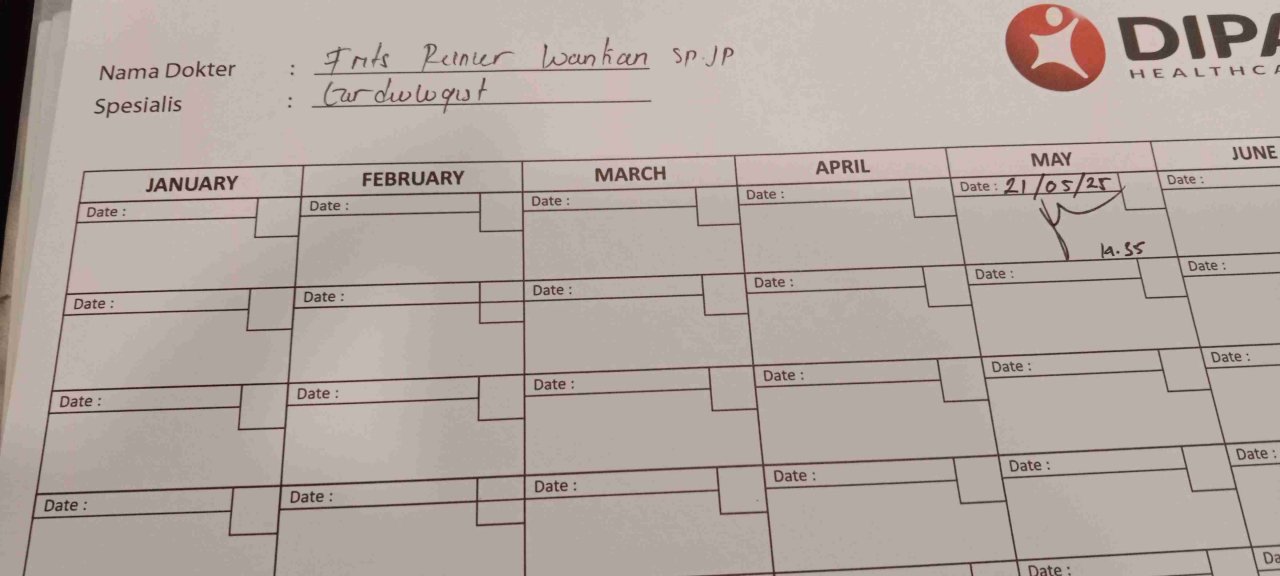 DIPA
HEALTHCA
Nama Dokter : Frits Reinier Wantian SP.JP
Spesialis : Cardiologist
JANUARY FEBRUARY MARCH APRIL MAY JUNE
Date : Date : Date : Date : Date : 21/05/25 Date :
14.35
Date : Date : Date : Date : Date : Date :
Date : Date : Date : Date : Date : Date :
Date : Date : Date : Date : Date : Date :
Date : Da